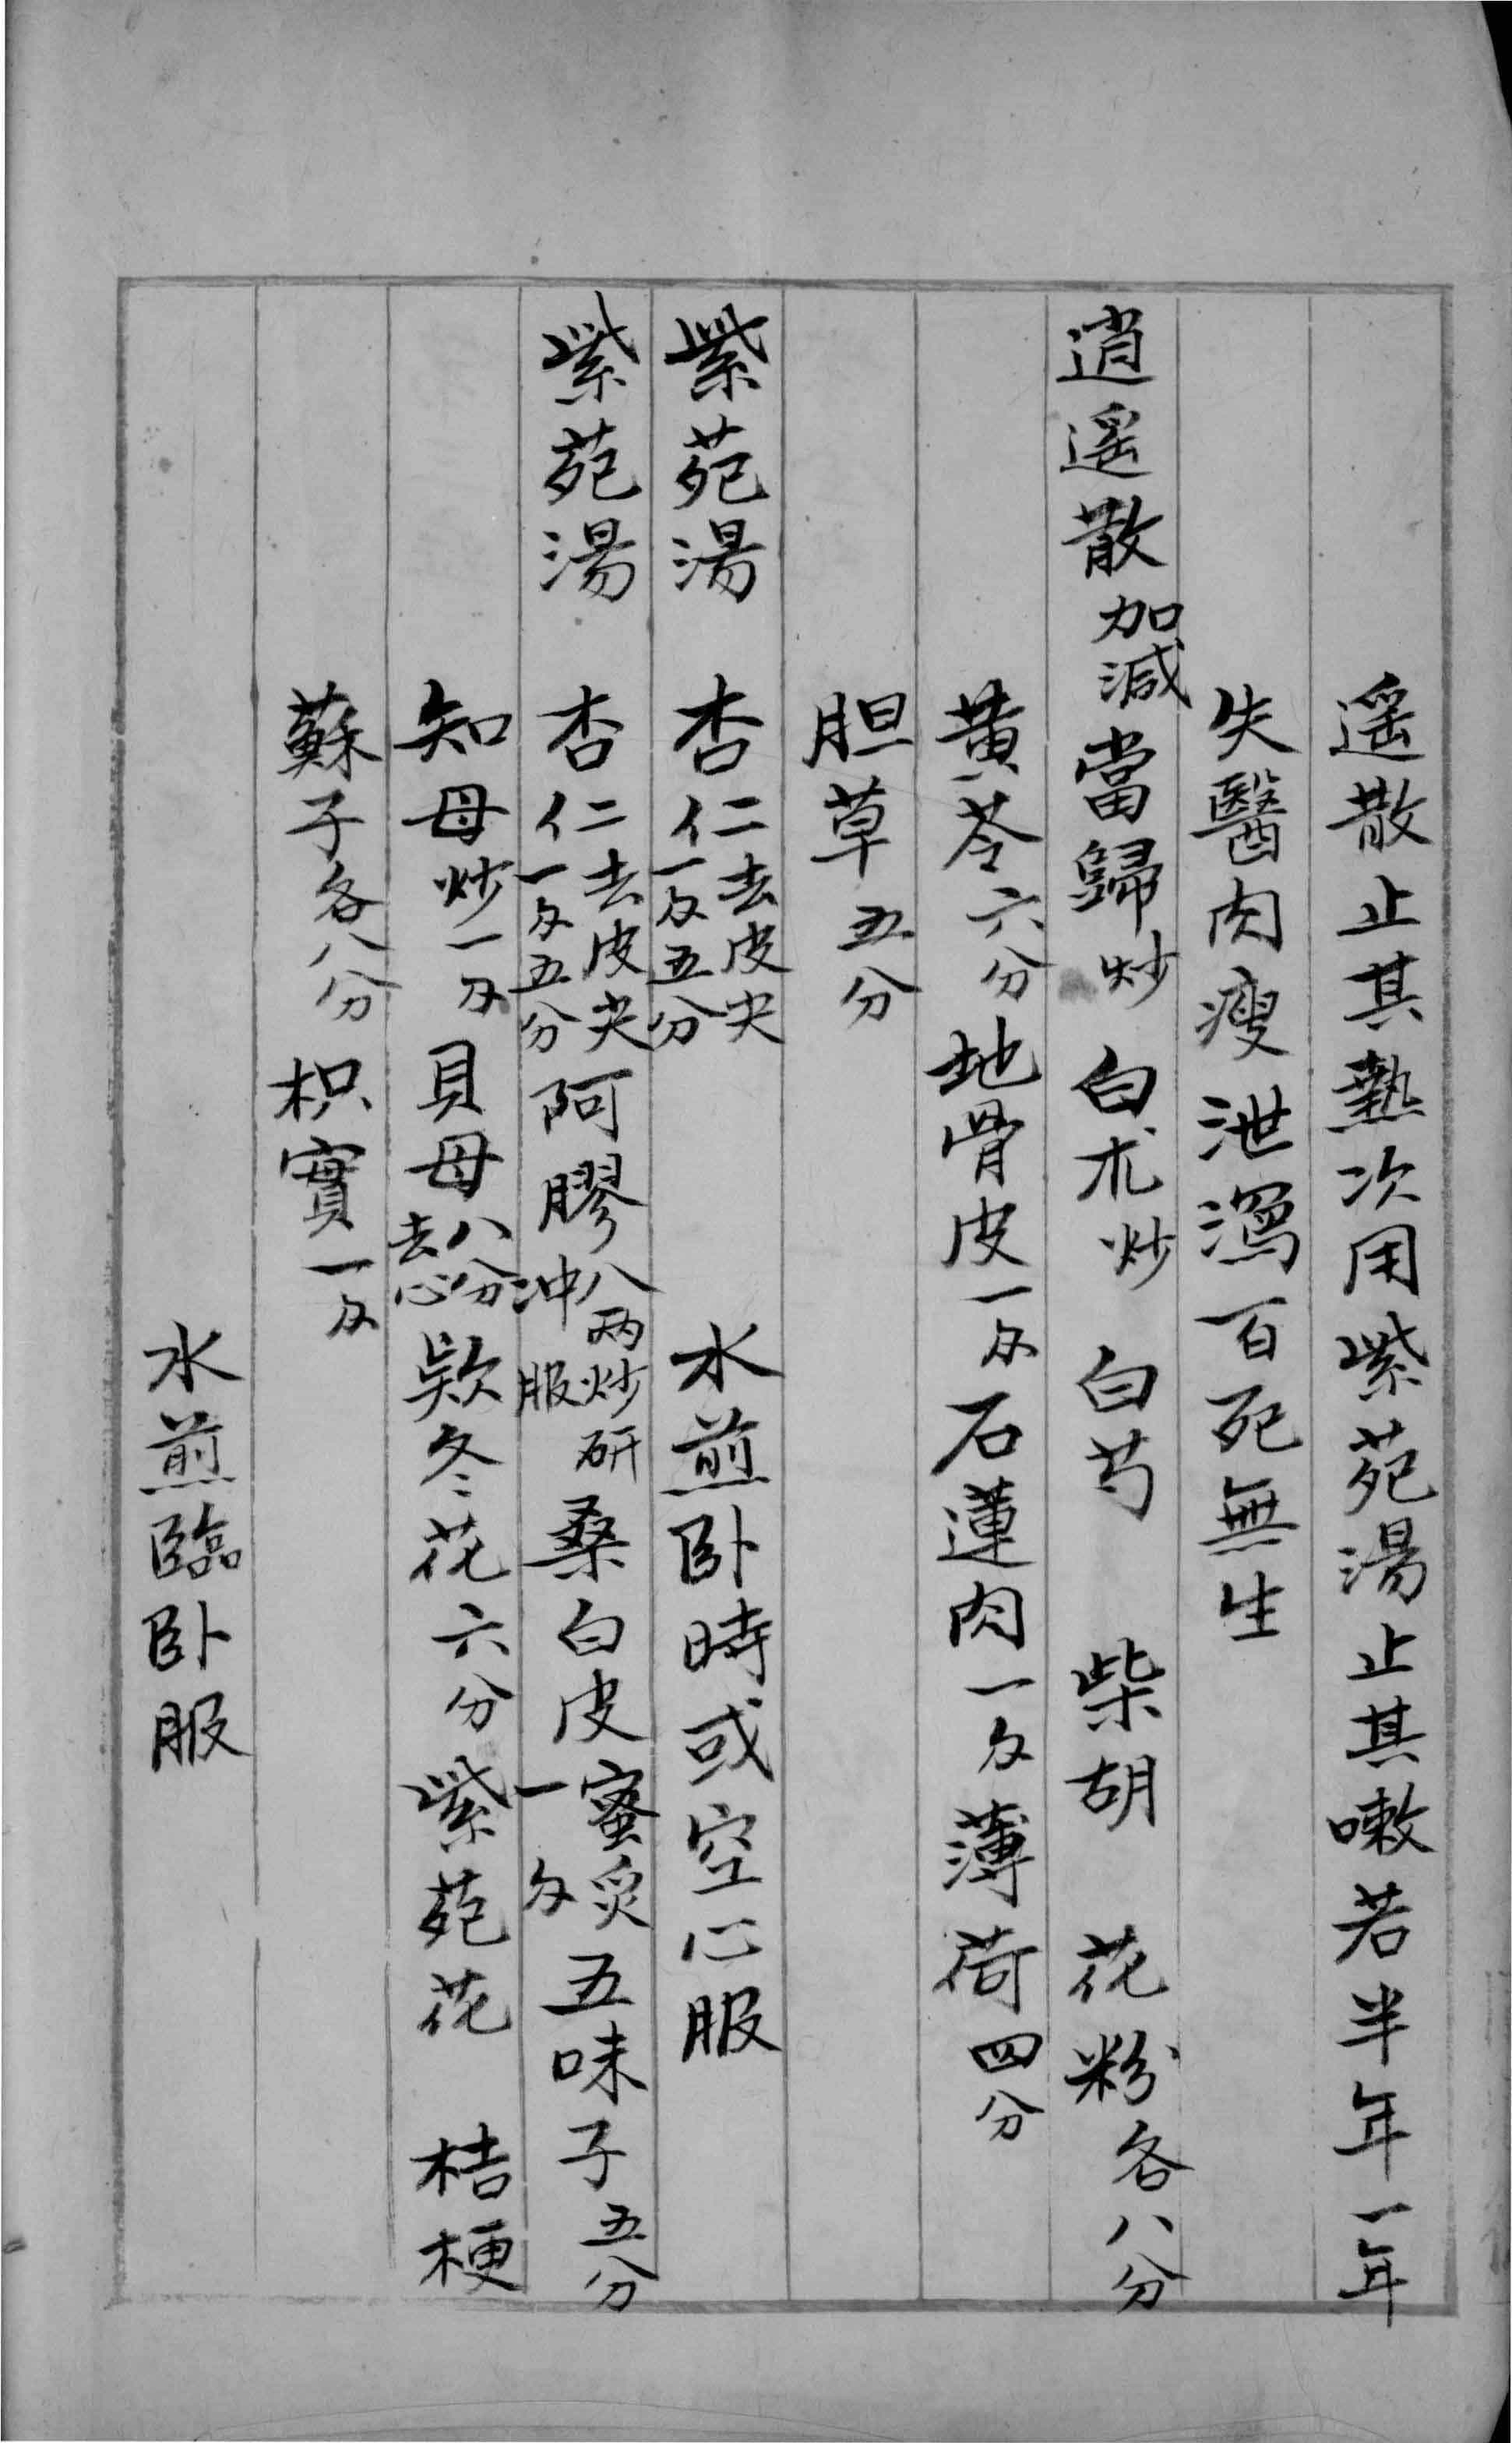 遥散止其熱次用紫苑湯止其嗽若半年一年
失醫肉瘦泄瀉百死無生
逍遥散加減當歸炒白朮炒白芍柴胡花粉各八分
黄芩六分地骨皮一匁石蓮肉一匁薄荷四分
胆草五分
紫苑湯杏仁去皮尖一匁五分水煎卧時或空心服
紫苑湯杏仁去皮尖一匁五分阿膠八両炒研冲服桑白皮蜜炙一匁五味子五分
知母炒一匁貝母八分去心欵冬花六分紫苑花桔梗
蘇子各八分枳實一匁
水煎臨卧服